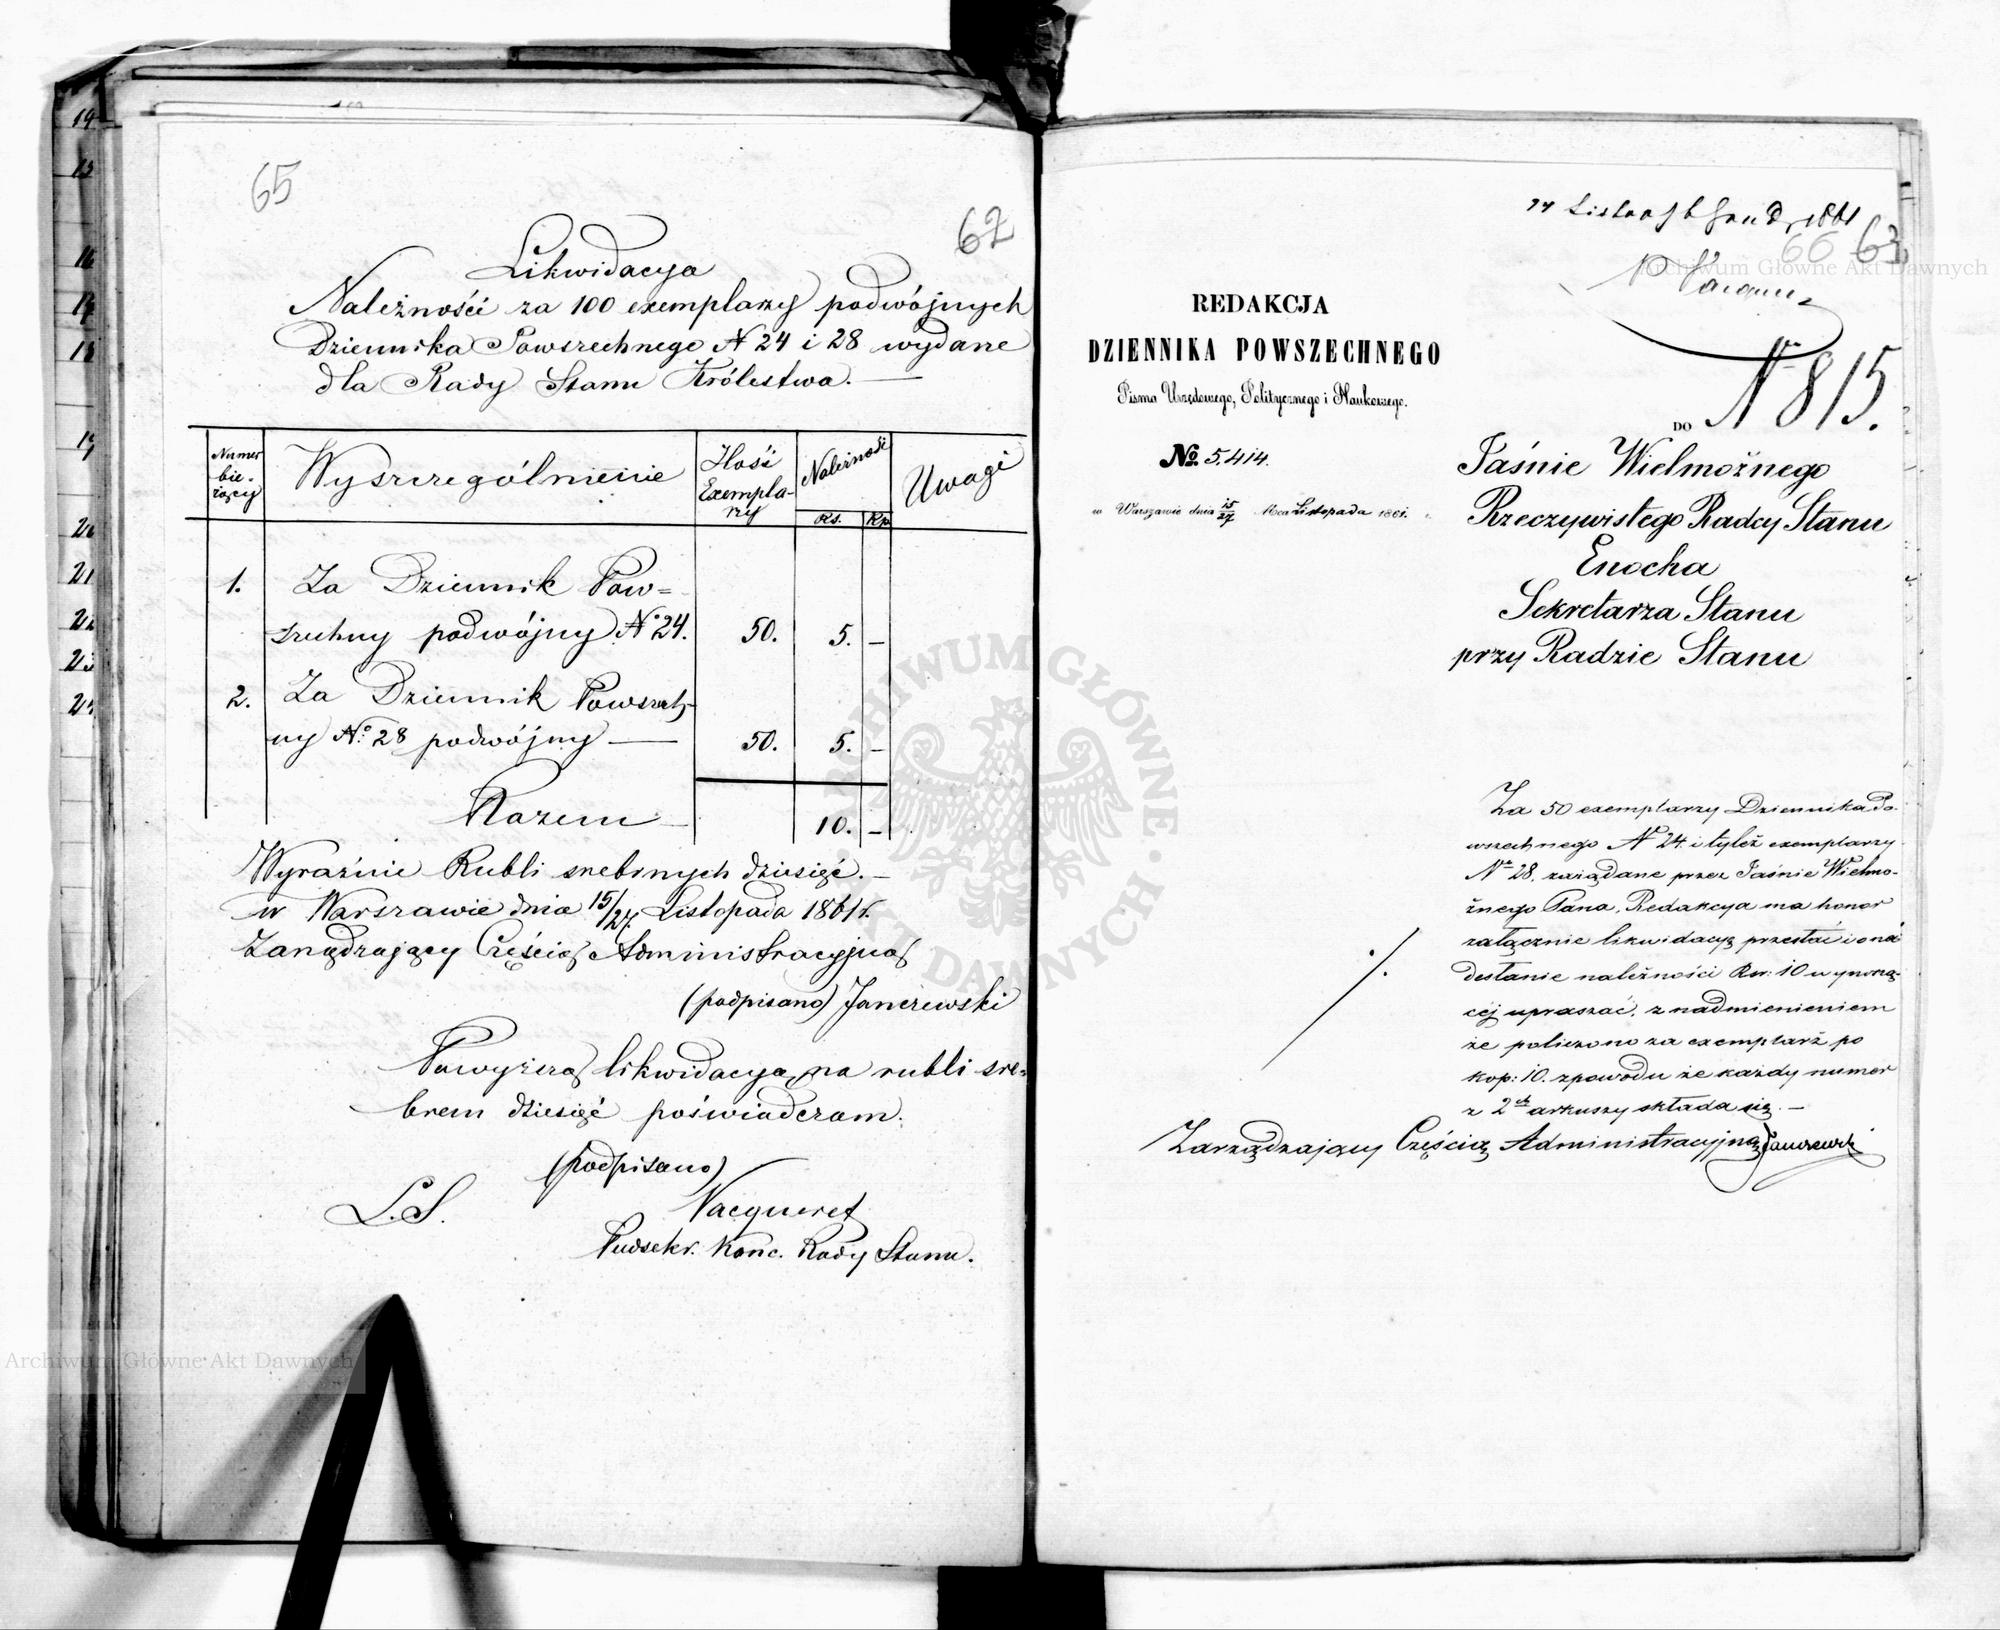 65
62
Likwidacyja
Należności za 100 exemplarzy podwójnych
Dziennika Powszechnego N 24 i 28 wydane
dla Rady Stanu Królestwa. —
Numer bie-żący
Wyszczególnienie
Ilość Exempla-rzy
Należność
Rs. Kp.
Uwagi
1. Za Dziennik Pow=
szechny podwójny No 24. 50. 5. —
2. Za Dziennik Powszech-
ny No. 28 podwójny — 50. 5. —
Razem — 10. —
Wyraźnie Rubli srebrnych dziesięć. —
w Warszawie dnia 15/27. Listopada 1861 r.
Zarządzający Częścią Administracyjną
(podpisano) Janczewski
Powyższą likwidacyją na rubli sre-
brem dziesięć poświadczam.
(podpisano)
L.S.
Vacqueret
Podsekr. Kanc. Rady Stanu.
14
15
16
17
18
19
20
21
22
23
24
1861
66 63
REDAKCJA
DZIENNIKA POWSZECHNEGO
Pisma Urzędowego, Politycznego i Naukowego.
No. 5,414.
w Warszawie dnia 15/27 Mca Listopada 1861.
N 815.
DO
Jaśnie Wielmożnego
Rzeczywistego Radcy Stanu
Enocha
Sekretarza Stanu
przy Radzie Stanu
Za 50 exemplarzy Dziennika Po-
wszechnego No 24. i tyleż exemplarzy
No 28. zażądane przez Jaśnie Wielmo-
żnego Pana, Redakcya ma honor
załącznie likwidacyą przesłać i o na-
desłanie należności Rsr: 10 wynoszą-
cej upraszać, z nadmienieniem
że policzono za exemplarz po
kop: 10. z powodu że każdy numer
z 2ch arkuszy składa się. —
Zarządzający Częścią Administracyjną Janczewski
ARCHIWUM GŁÓWNE AKT DAWNYCH
Archiwum Główne Akt Dawnych
Archiwum Główne Akt Dawnych